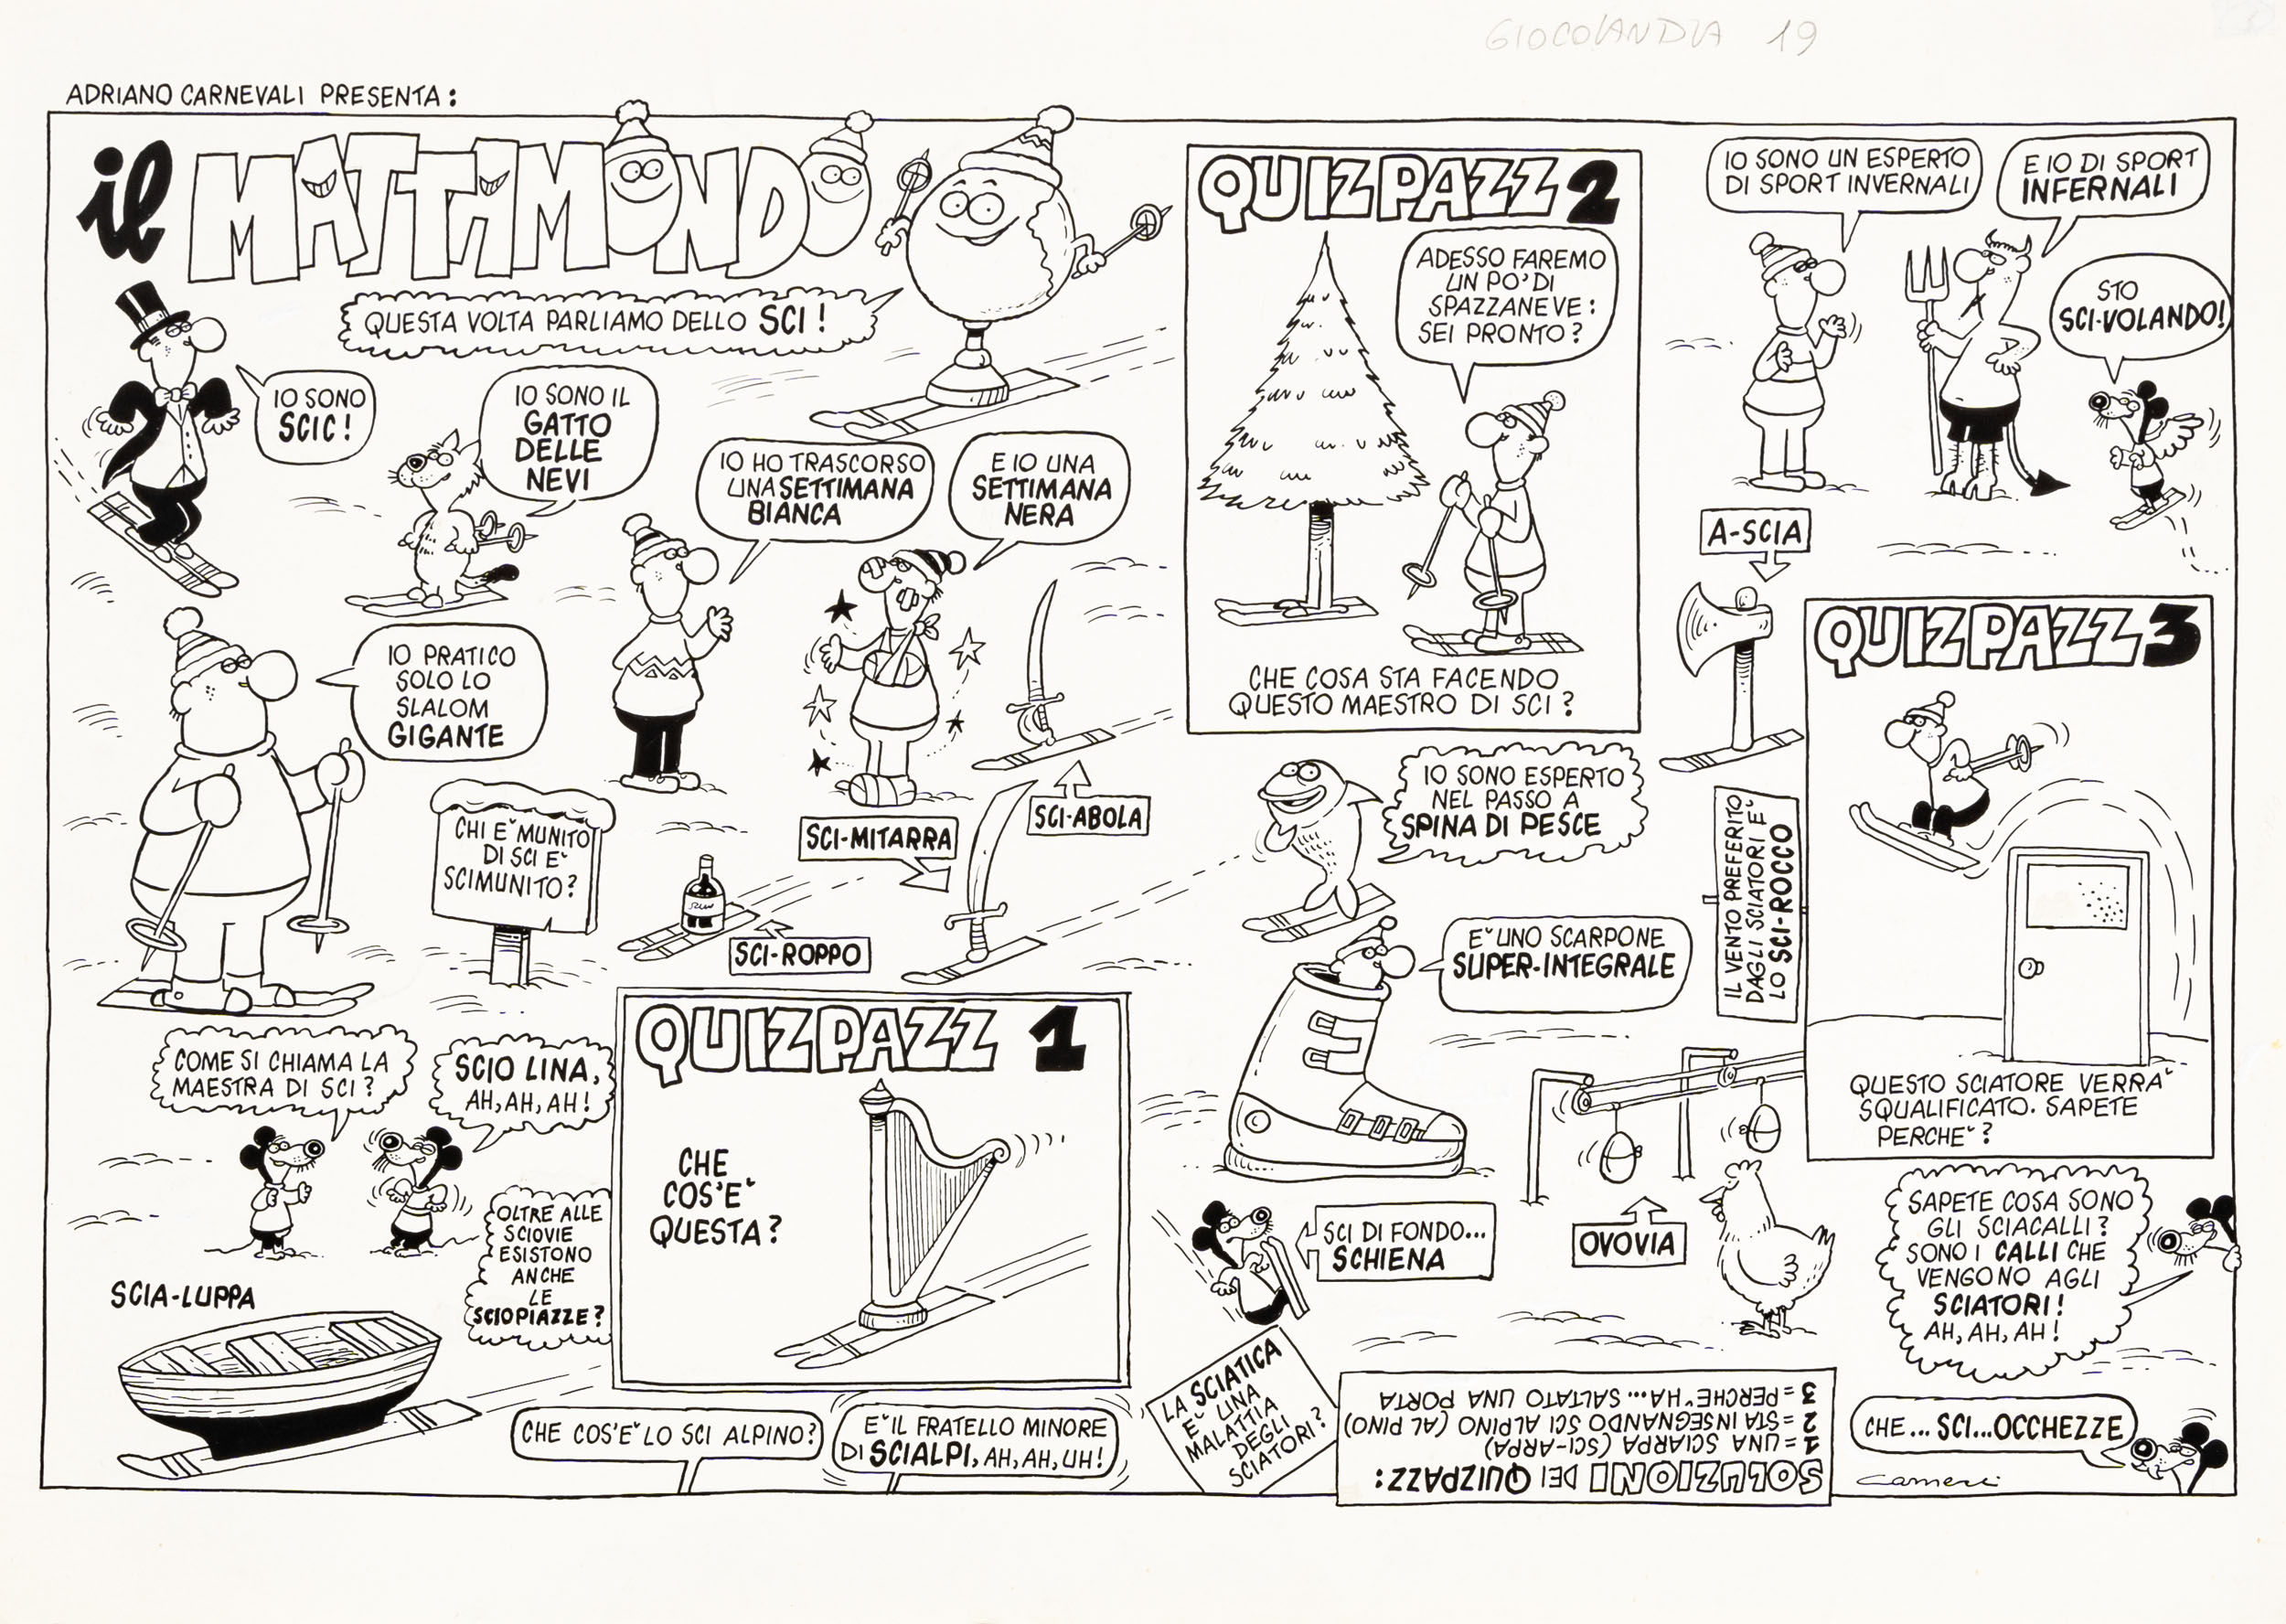 GIOCOLANDIA 19
ADRIANO CARNEVALI PRESENTA:
il MATTAMONDO
QUESTA VOLTA PARLIAMO DELLO SCI!
IO SONO
SCIC!
IO SONO IL
GATTO
DELLE
NEVI
IO HO TRASCORSO
UNA SETTIMANA
BIANCA
E IO UNA
SETTIMANA
NERA
IO PRATICO
SOLO LO
SLALOM
GIGANTE
CHI E' MUNITO
DI SCI E'
SCIMUNITO?
SCI-ROPPO
SCI-MITARRA
SCI-ABOLA
COME SI CHIAMA LA
MAESTRA DI SCI?
SCIO LINA,
AH, AH, AH!
OLTRE ALLE
SCIOVIE
ESISTONO
ANCHE
LE
SCIOPIAZZE?
SCIA-LUPPA
QUIZPAZZ 1
CHE
COS'E'
QUESTA?
CHE COS'E' LO SCI ALPINO?
E' IL FRATELLO MINORE
DI SCIALPI, AH, AH, UH!
QUIZPAZZ 2
ADESSO FAREMO
UN PO' DI
SPAZZANEVE:
SEI PRONTO?
CHE COSA STA FACENDO
QUESTO MAESTRO DI SCI?
IO SONO UN ESPERTO
DI SPORT INVERNALI
E IO DI SPORT
INFERNALI
STO
SCI-VOLANDO!
A-SCIA
IO SONO ESPERTO
NEL PASSO A
SPINA DI PESCE
E' UNO SCARPONE
SUPER-INTEGRALE
IL VENTO PREFERITO
DAGLI SCIATORI E'
LO SCI-ROCCO
QUIZPAZZ 3
QUESTO SCIATORE VERRA'
SQUALIFICATO. SAPETE
PERCHE'?
SCI DI FONDO...
SCHIENA
OVOVIA
LA SCIATICA
E' UNA
MALATTIA
DEGLI
SCIATORI?
SAPETE COSA SONO
GLI SCIACALLI?
SONO I CALLI CHE
VENGONO AGLI
SCIATORI!
AH, AH, AH!
SOLUZIONI DEI QUIZPAZZ:
1=UNA SCIARPA (SCI-ARPA)
2=STA INSEGNANDO SCI ALPINO (AL PINO)
3=PERCHE' HA... SALTATO UNA PORTA
CHE... SCI...OCCHEZZE